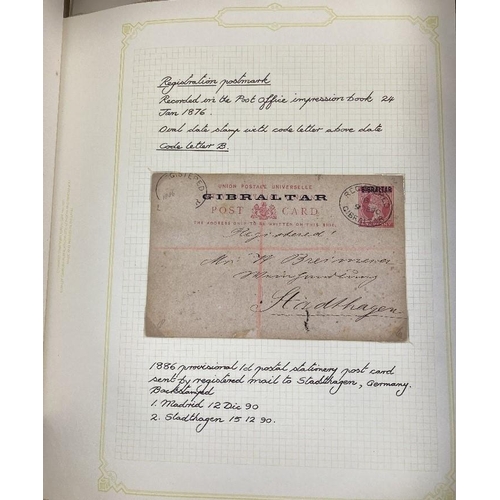 Registration postmark
Recorded in the Post Office impression book 24
Jan 1876.
Oval date stamp with code letter above date
Code letter B.
REGISTERED
UNION POSTALE UNIVERSELLE
GIBRALTAR
GIBRALTAR
POST CARD
REGISTERED
GIBRALTAR
THE ADDRESS ONLY TO BE WRITTEN ON THIS SIDE
Registered
W. Breimeier
Weinhandlung
Stadthagen
1886 provisional 1d postal stationery post card
sent by registered mail to Stadthagen, Germany.
Backstamped
1. Madrid 12 Dic 90
2. Stadthagen 15 12 90.